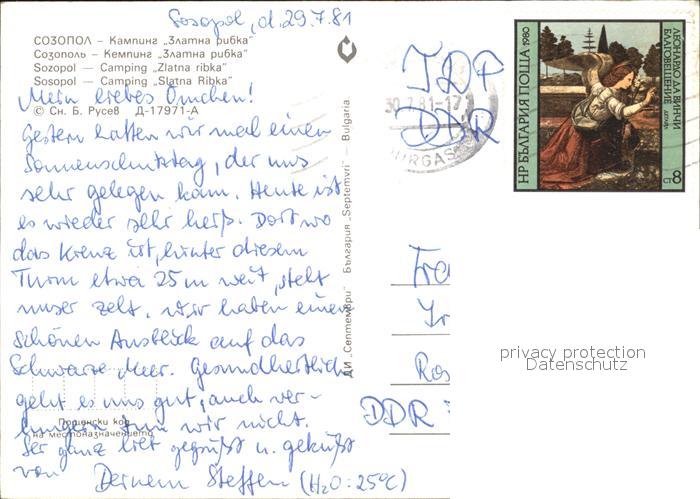 Sosopol, d. 29.7.81
СОЗОПОЛ – Кампинг „Златна рибка“
Созополь – Кемпинг „Златна рибка“
Sozopol — Camping „Zlatna ribka“
Sosopol — Camping „Slatna Ribka“
Mein liebes Omchen!
© Сн. Б. Русев Д-17971-А
Gestern hatten wir mal einen
Sonnenschutztag, der uns
sehr gelegen kam. Heute ist
es wieder sehr heiß. Dort wo
das Kreuz ist, hinter diesem
Turm etwa 25 m weit, steht
unser Zelt. Wir haben einen
schönen Ausblick auf das
Schwarze Meer. Gesundheitlich
geht es uns gut, auch ver-
hungern tun wir nicht.
Пощенски код
на местоназначението
Sei ganz lieb gegrüßt u. geküßt
von Deinem Steffen (H₂O: 25°C)
ДИ „Септември“ България „Septemvri“ — Bulgaria
JDP
DDR
30.7.81-17
BURGAS
НР БЪЛГАРИЯ ПОЩА 1980
ЛЕОНАРДО ДА ВИНЧИ
БЛАГОВЕЩЕНИЕ ДЕТАЙЛ
СТ 8
Fra
Ir
Ros
DDR
privacy protection
Datenschutz